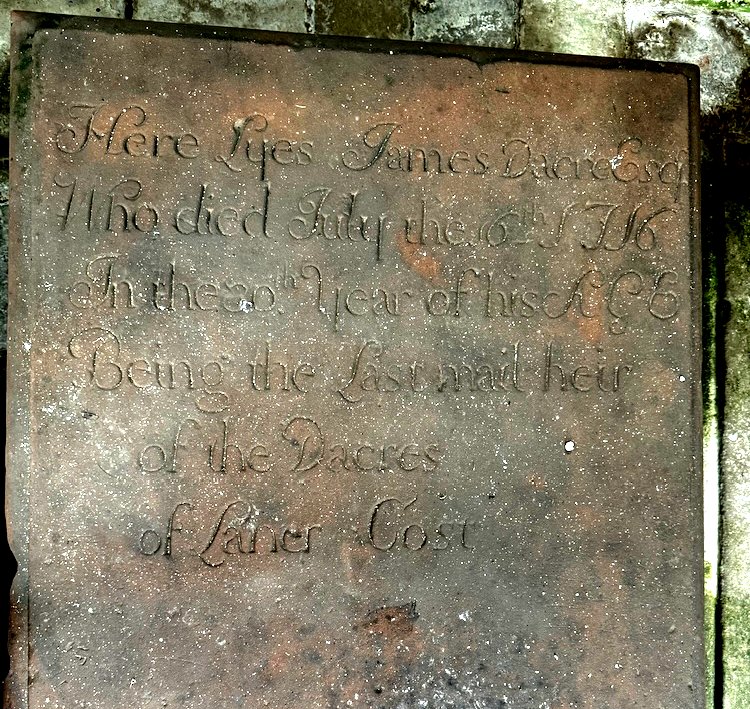 Here Lyes James Dacre Esq
Who died July the 16th 1716
In the 30th Year of his AGE
Being the Last mail heir
of the Dacres
of Laner Cost